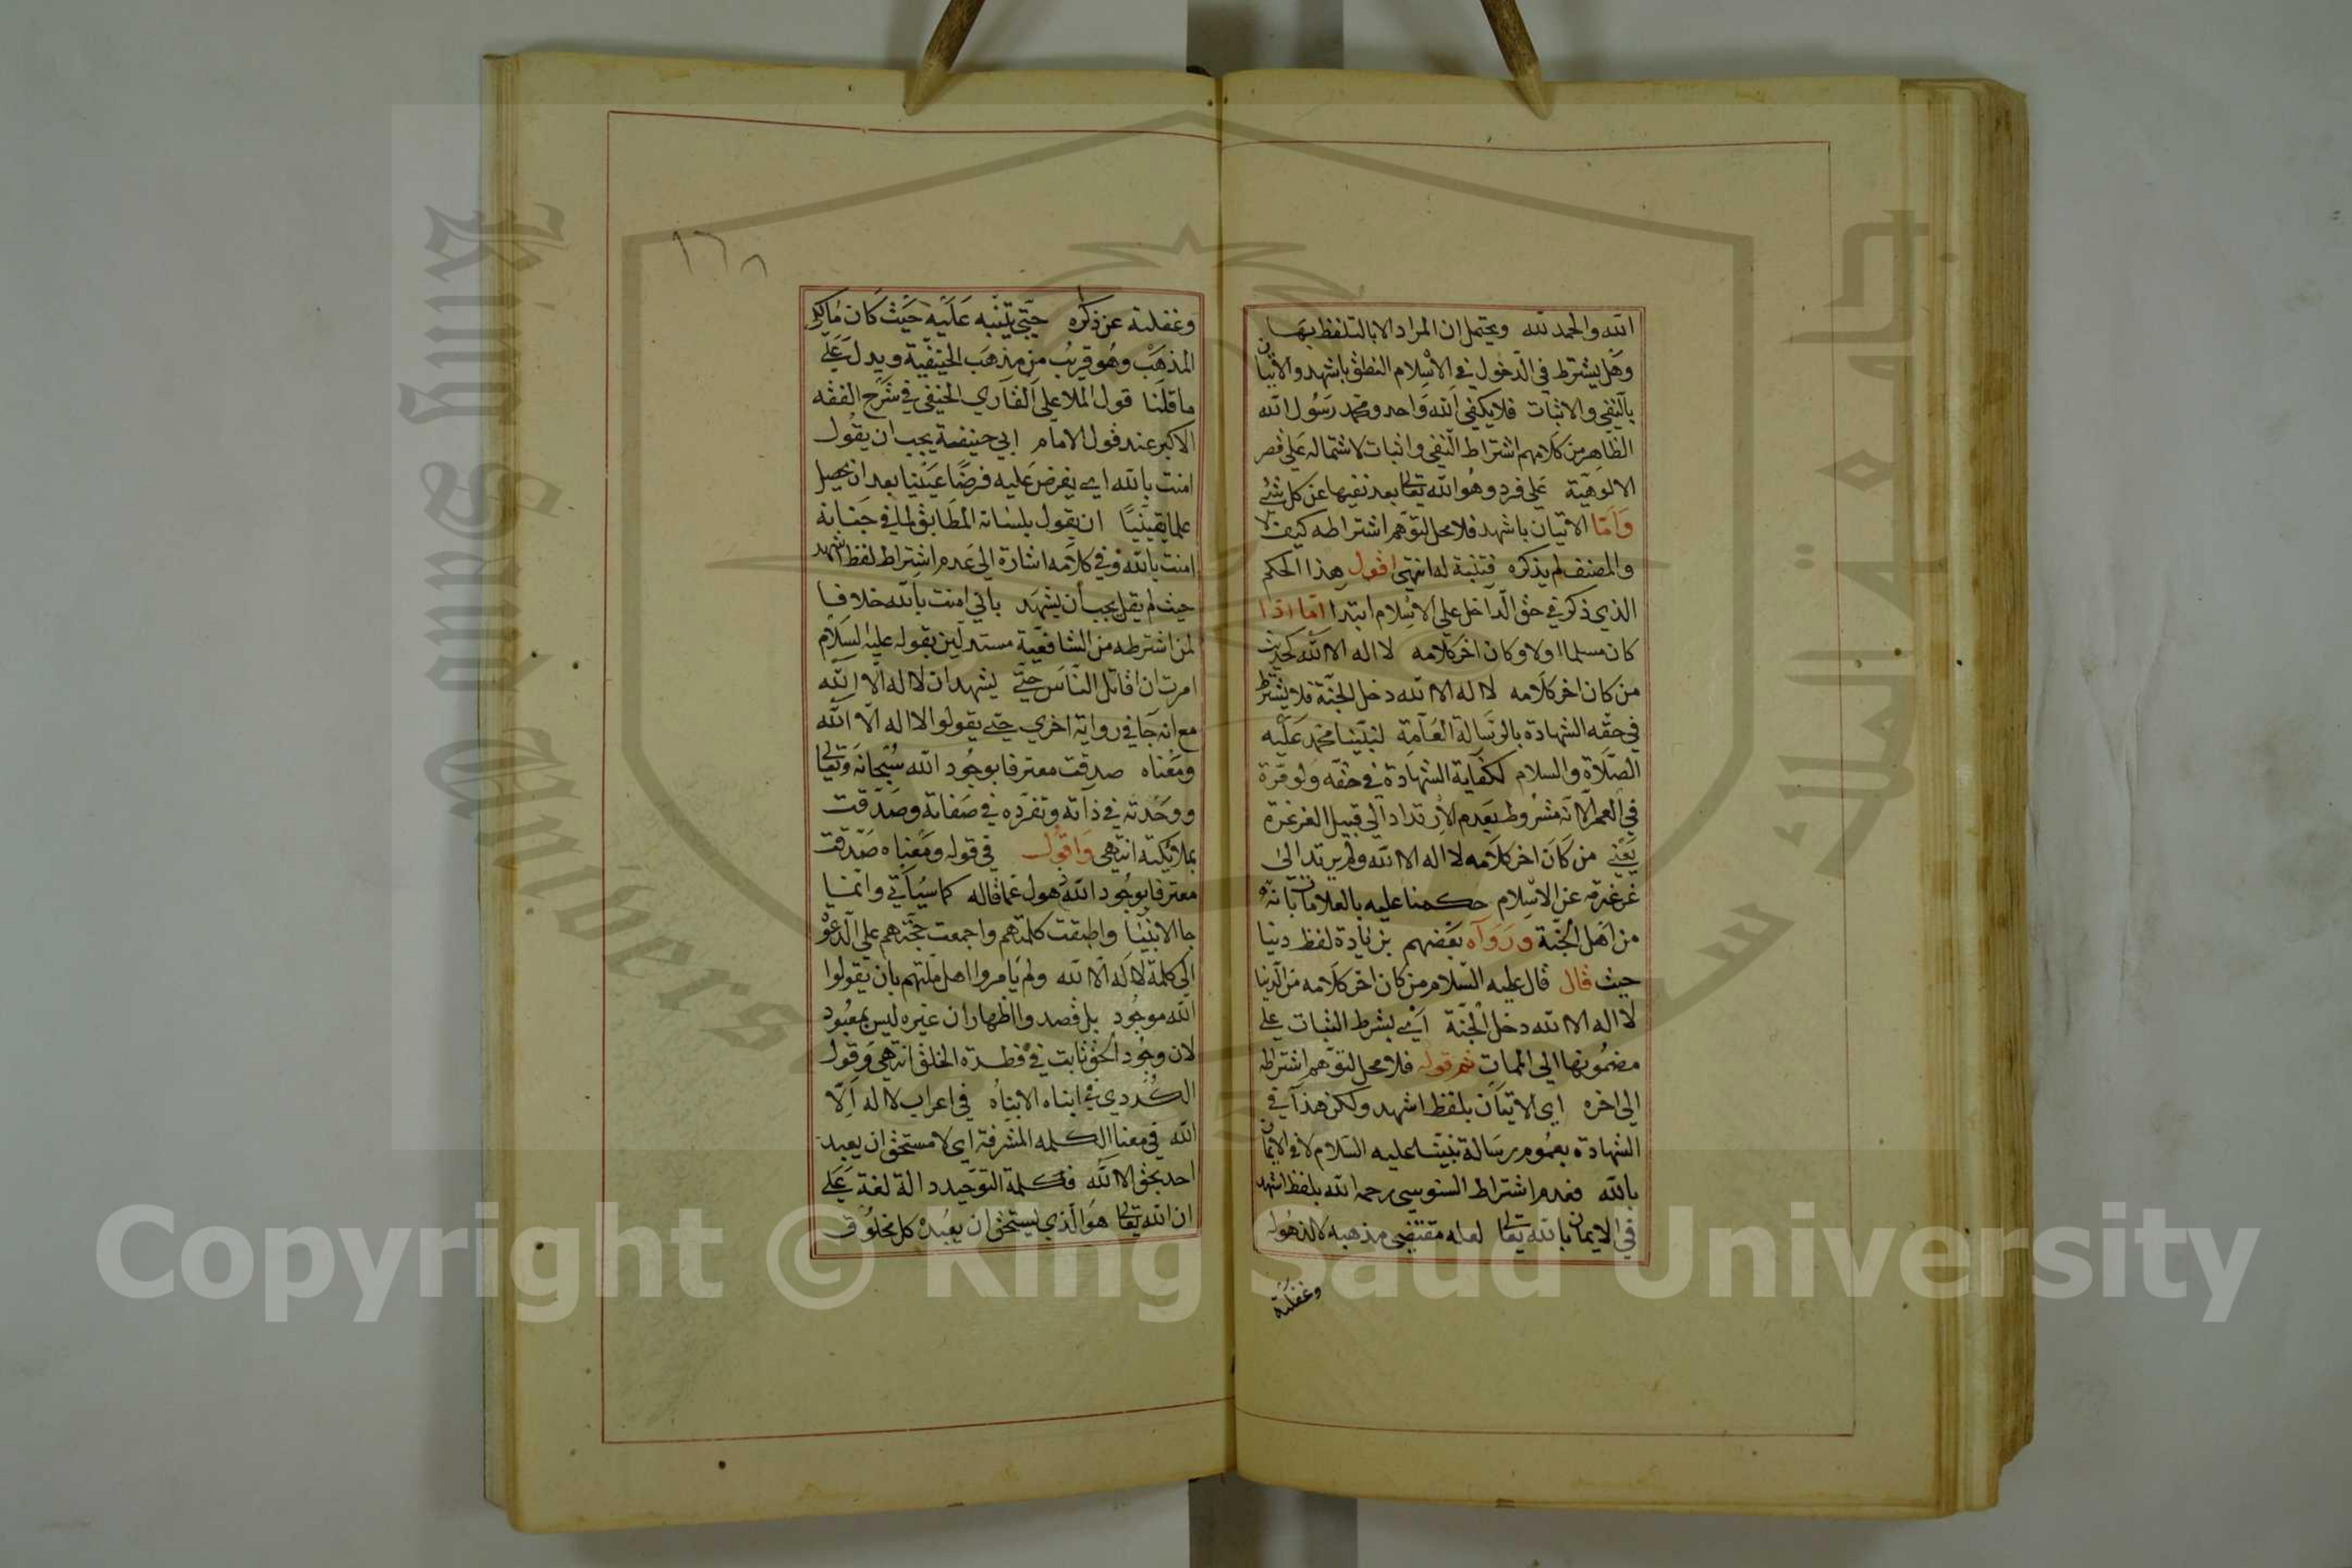 الله والحمد لله ويحتمل ان المراد الا بالتلفظ بها
وهل يشترط في الدخول في الاسلام النطق باشهد والاتيان
بالنفي والاثبات فلا يكفي الله واحد ومحمد رسول الله
الظاهر من كلامهم اشتراط النفي واثبات لاشتماله على قصر
الالوهية على فرد وهو الله تعالى بعد نفيها عن كل شئ
واما الاتيان باشهد فلا محل لتوهم اشتراطه كيف لا
والمصنف لم يذكره فتنبه له انتهى اقول هذا الحكم
الذي ذكر في حق الداخل على الاسلام ابتدا اما اذا
كان مسلما اولا وكان اخر كلامه لا اله الا الله لحديث
من كان اخر كلامه لا اله الا الله دخل الجنة فلا يشترط
في حقه الشهادة بالرسالة العامة لنبينا محمد عليه
الصلاة والسلام لكفاية الشهادة في حقه ولو مرة
في العمر الا انه مشروط بعدم الارتداد الى قبيل الغرغرة
يعني من كان اخر كلامه لا اله الا الله ولم يرتد الى
غرغرته عن الاسلام حكمنا عليه بالعلامات بانه
من اهل الجنة ورواه بعضهم بزيادة لفظ دنيا
حيث قال قال عليه السلام من كان اخر كلامه من الدنيا
لا اله الا الله دخل الجنة اي بشرط الثبات على
مضمونها الى الممات ثم قوله فلا محل لتوهم اشتراطه
الى اخره اي الاتيان بلفظ اشهد ولكن هذا في
الشهادة بعموم رسالة نبينا عليه السلام لا في الايمان
بالله فعدم اشتراط السنوسي رحمه الله بلفظ اشهد
في الايمان بالله تعالى لعله مقتضى مذهبه لا لذهوله
وغفلته
١٦٨
وغفلته عن ذكره حتى يتنبه عليه حيث كان مالكي
المذهب وهو قريب من مذهب الحنفية ويدل على
ما قلنا قول الملا علي القاري الحنفي في شرح الفقه
الاكبر عند قول الامام ابي حنيفة يجب ان يقول
امنت بالله اي يفرض عليه فرضا عينيا بعد ان يحصل
علما يقينيا ان يقول بلسانه المطابق لما في جنانه
امنت بالله وفي كلامه اشارة الى عدم اشتراط لفظ اشهد
حيث لم يقل يجب أن يشهد باني امنت بالله خلافا
لمن اشترطه من الشافعية مستدلين بقوله عليه السلام
امرت ان اقاتل الناس حتى يشهد ان لا اله الا الله
مع انه جا في رواية اخرى حتى يقولوا لا اله الا الله
ومعناه صدقت معترفا بوجود الله سبحانه وتعالى
ووحدته في ذاته وتفرده في صفاته وصدقت
بملائكته انتهى واقول في قوله ومعناه صدقت
معترفا بوجود الله ذهول عما قاله كما سياتي وانما
جا الانبيا واطبقت كلمتهم واجمعت حجتهم على الدعوة
الى كلمة لا اله الا الله ولم يامروا اهل ملتهم بان يقولوا
الله موجود بل قصدوا اظهار ان غيره ليس بمعبود
لان وجود الحق ثابت في فطرة الخلق انتهى وقول
الكردي في انباه الانباه في اعراب لا اله الا
الله في معنا الكلمه المشرفة اي لا مستحق ان يعبد
احد بحق الا الله فكلمة التوحيد دالة لغة على
ان الله تعالى هو الذي يستحق ان يعبده كل مخلوق
King Saud University
جامعة الملك سعود
Copyright © King Saud University